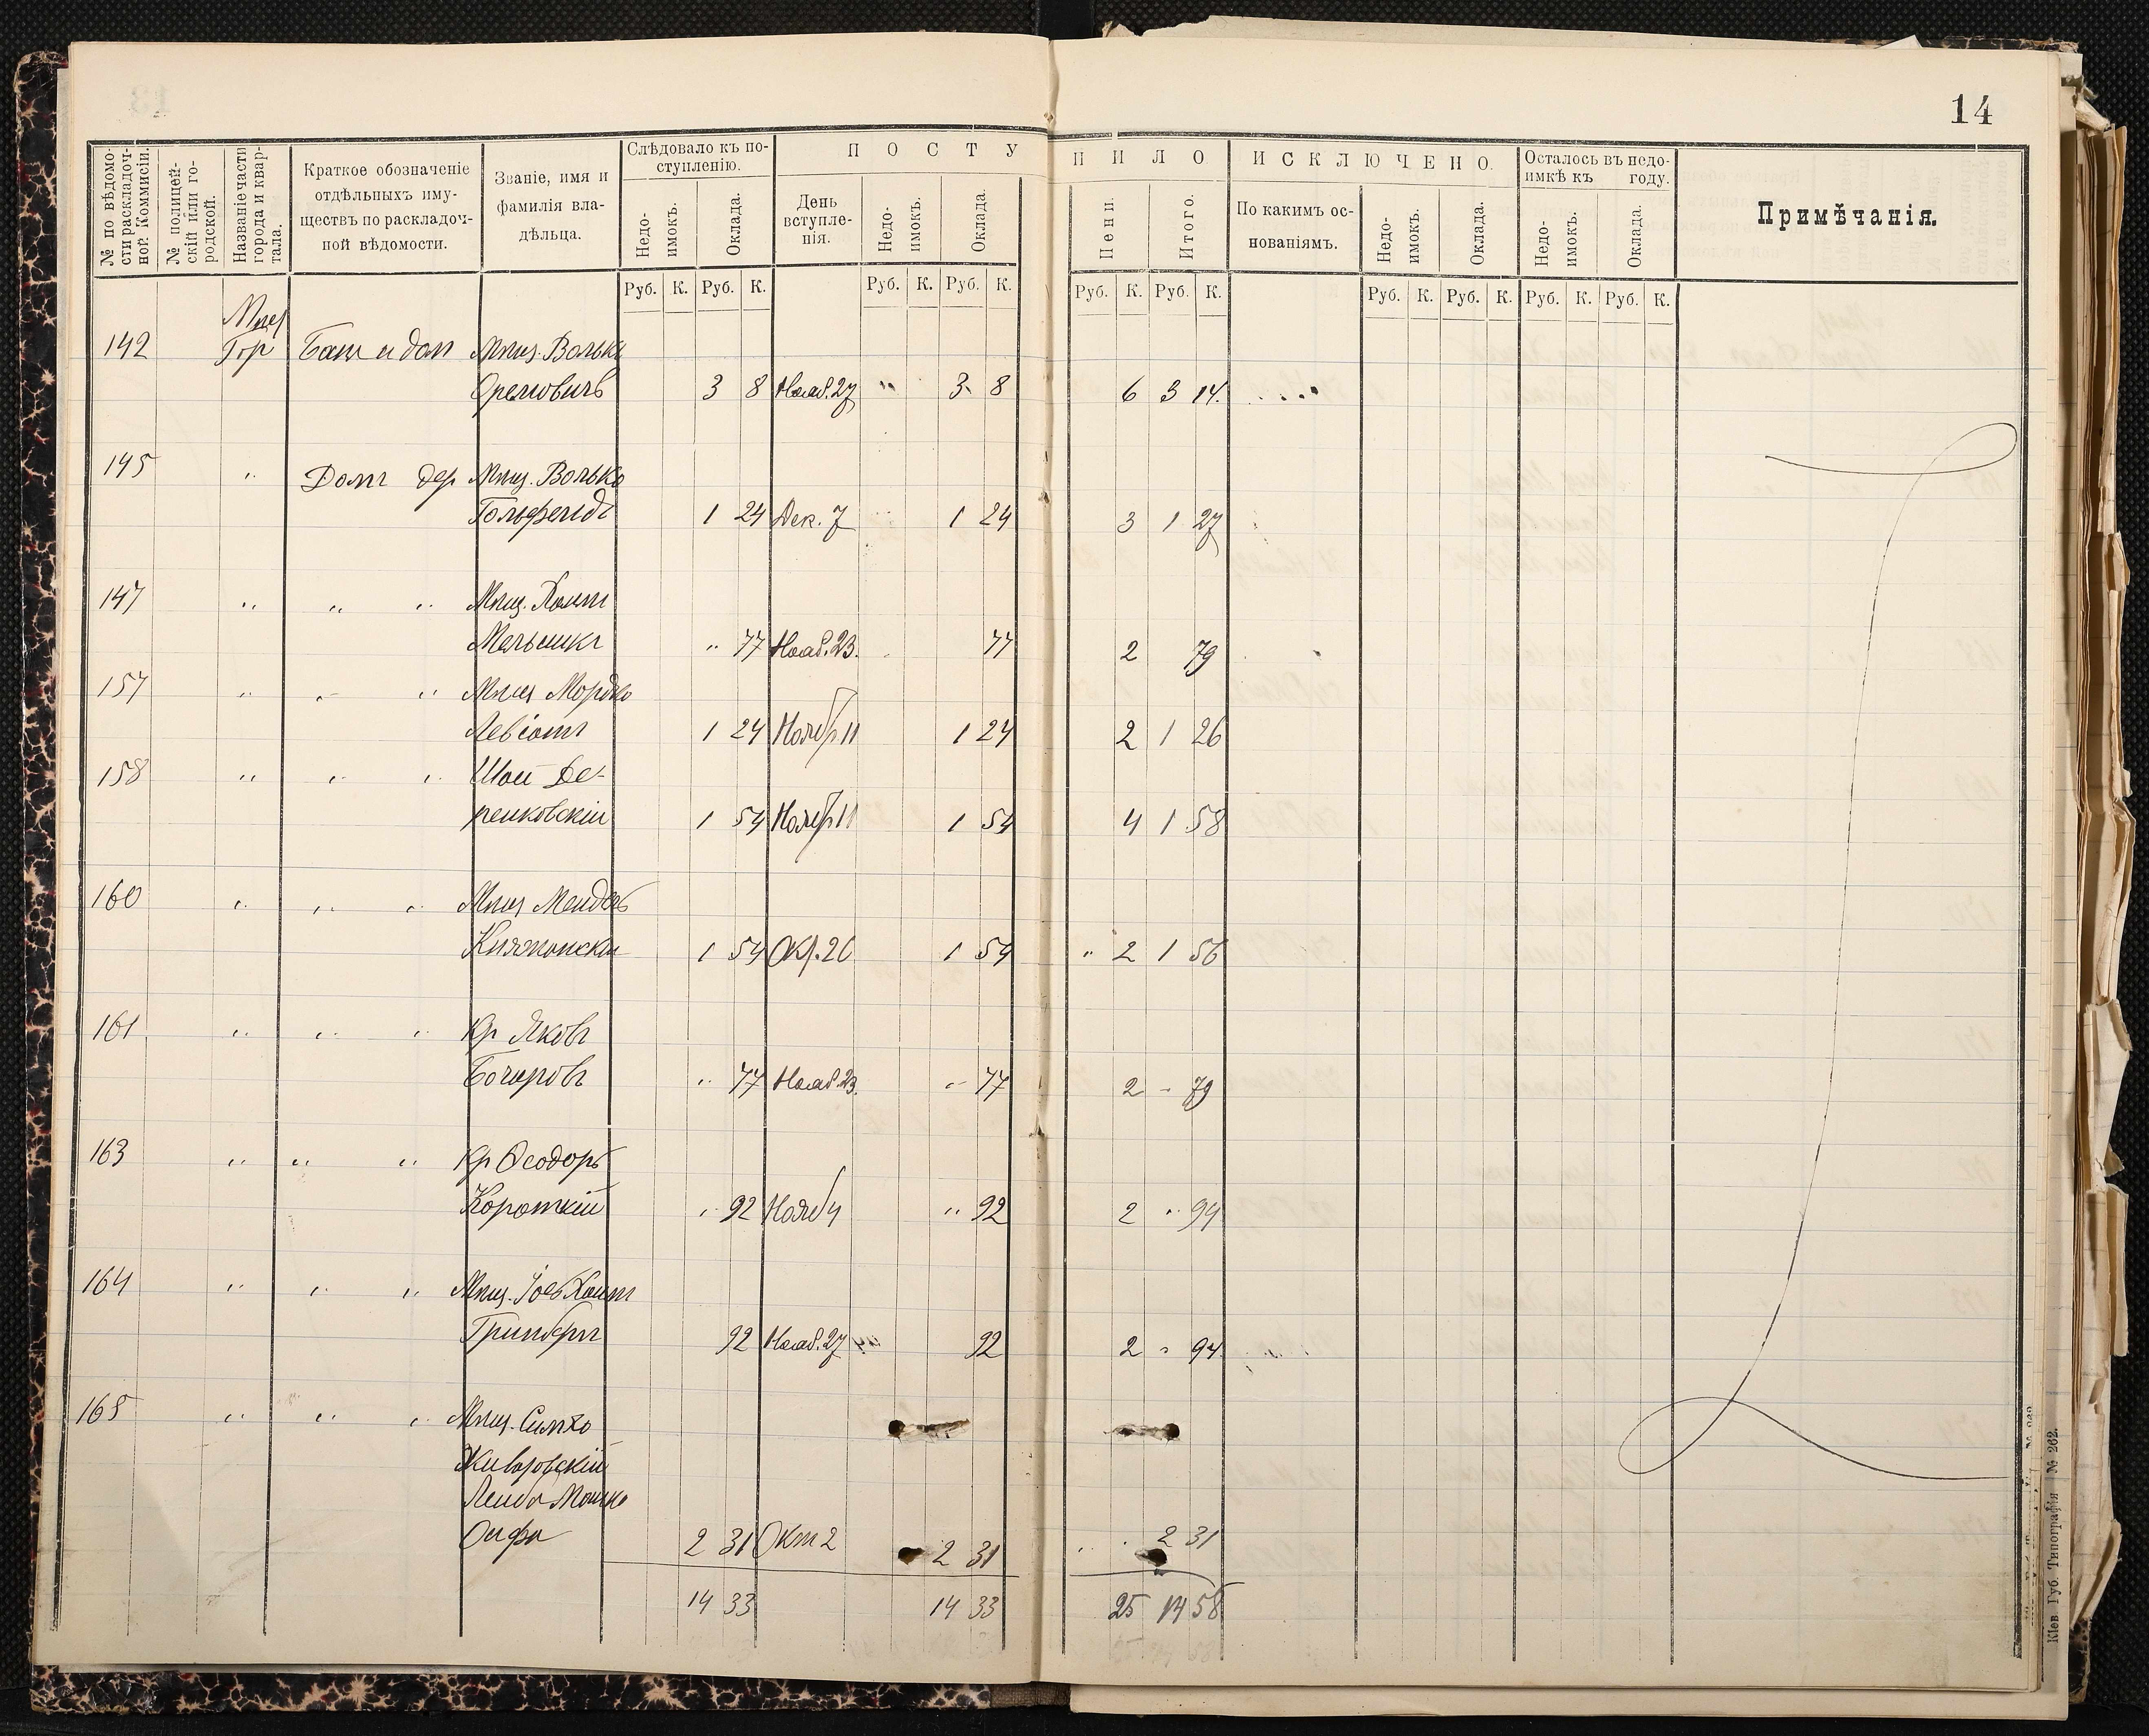 14
№ по вѣдомости раскладочной Коммисіи.
№ полицейскій или городской.
Названіе части города и квартала.
Краткое обозначеніе отдѣльныхъ имуществъ по раскладочной вѣдомости.
Званіе, имя и фамилія владѣльца.
Слѣдовало къ поступленію.
Недоимокъ. Оклада.
ПОСТУПИЛО.
День вступленія.
Недоимокъ. Оклада. Пени. Итого.
ИСКЛЮЧЕНО.
По какимъ основаніямъ.
Недоимокъ. Оклада.
Осталось въ недоимкѣ къ году.
Недоимокъ. Оклада.
Примѣчанія.
Руб. К. Руб. К. Руб. К. Руб. К. Руб. К. Руб. К. Руб. К. Руб. К. Руб. К. Руб. К.
142 Гор и дом Мѣщ. Волько
3 8 Нояб. 27 " 3 8 6 3 14.
145 " Домъ дер Мѣщ. Волько
Гольфельдъ 1 24 Дек. 7 1 24 3 1 27
147 " " " Мѣщ. Хаимъ
Мельникъ " 77 Нояб. 23. 77 2 79
157 " " " Мѣщ Мордко
1 24 Нояб 11 1 24 2 1 26
158 " " " Де-
ренковскій 1 54 Нояб 11 1 54 4 1 58
160 " " " Мѣщ Мендель
1 54 Окт. 26 1 54 " 2 1 56
161 " " " Кр Яковъ
" 77 Нояб. 23. " 77 2 - 79
163 " " " Кр Ѳеодоръ
Короткій " 92 Нояб 4 " 92 2 " 94
164 " " " Мѣщ. Хаимъ
Гринбергъ 92 Нояб. 27 92 2 " 94
165 " " " Мѣщ. Симхо
Лейба Мошко
2 31 Окт 2 2 31 2 31
14 33 14 33 25 14 58
Кіев Губ. Типографія № 262.